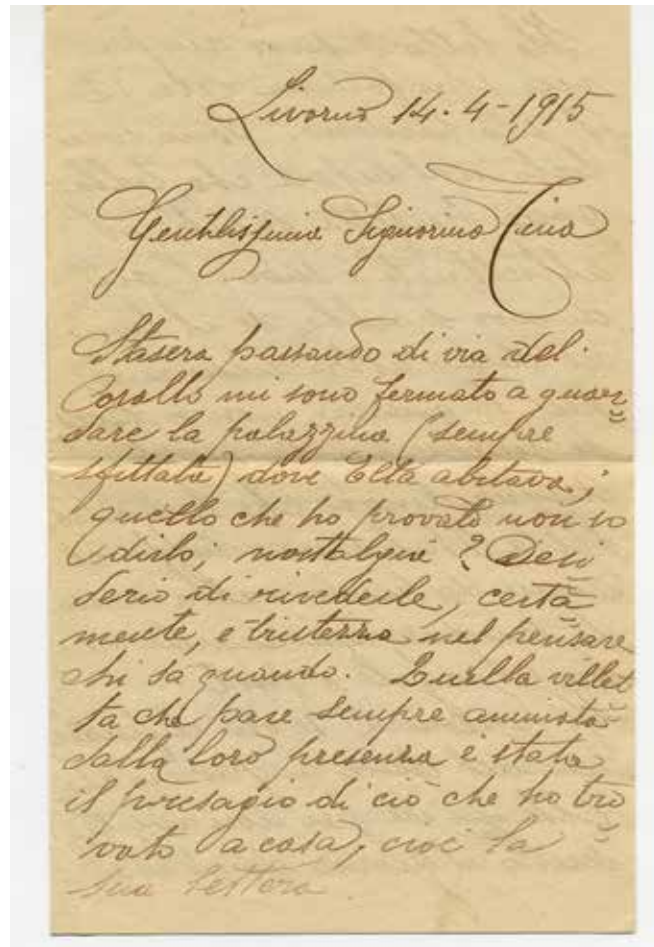 Livorno 14-4-1915
Gentilissima Signorina Tina
Stasera passando di via del
Corallo mi sono fermato a guar=
dare la palazzina (sempre
sfittata) dove Ella abitava;
quello che ho provato non so
dirlo; nostalgia? Desi
derio di rivederle, certa=
mente, e tristezza nel pensare
chi sa quando. Quella villet
ta che pare sempre animata
dalla loro presenza è stata
il presagio di ciò che ho tro=
vato a casa, cioè la
sua lettera